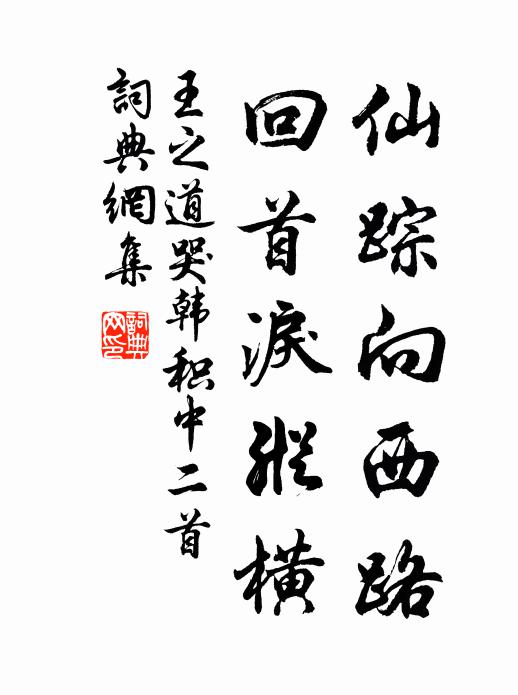 仙踪向西路
回首淚縱橫
王之道哭韩积中二首
詞典網集
詞典網印